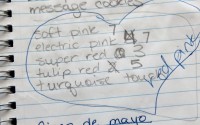 message cookies
soft pink 1
electric pink 7
super red 3
tulip red 5
turquoise
red pink
de mayo